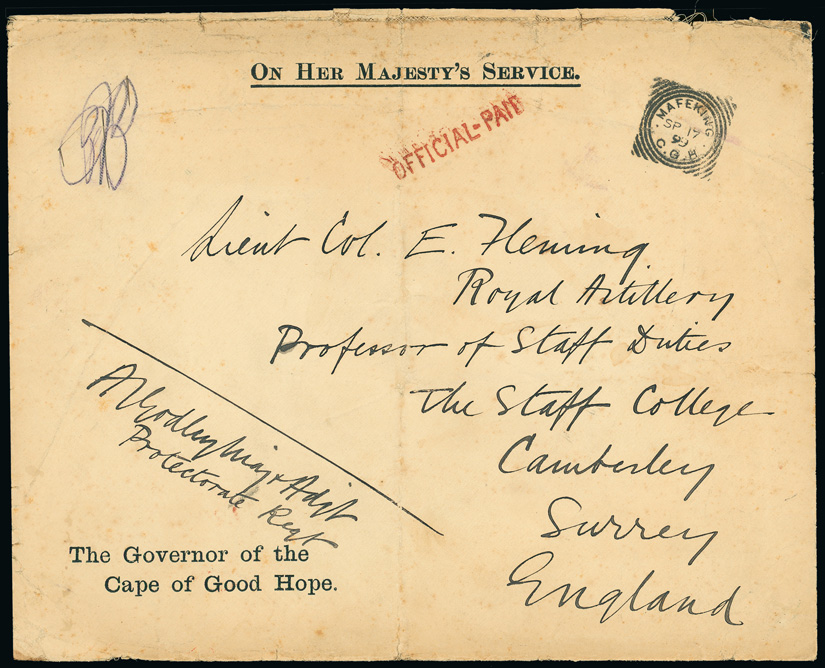 ON HER MAJESTY'S SERVICE.
OFFICIAL-PAID
MAFEKING
SP 17
99
C.G.H.
Lieut Col. E. Fleming
Royal Artillery
Professor of Staff Duties
The Staff College
Camberley
Surrey
England
A Godley Maj & Adjt
Protectorate Regt
The Governor of the
Cape of Good Hope.